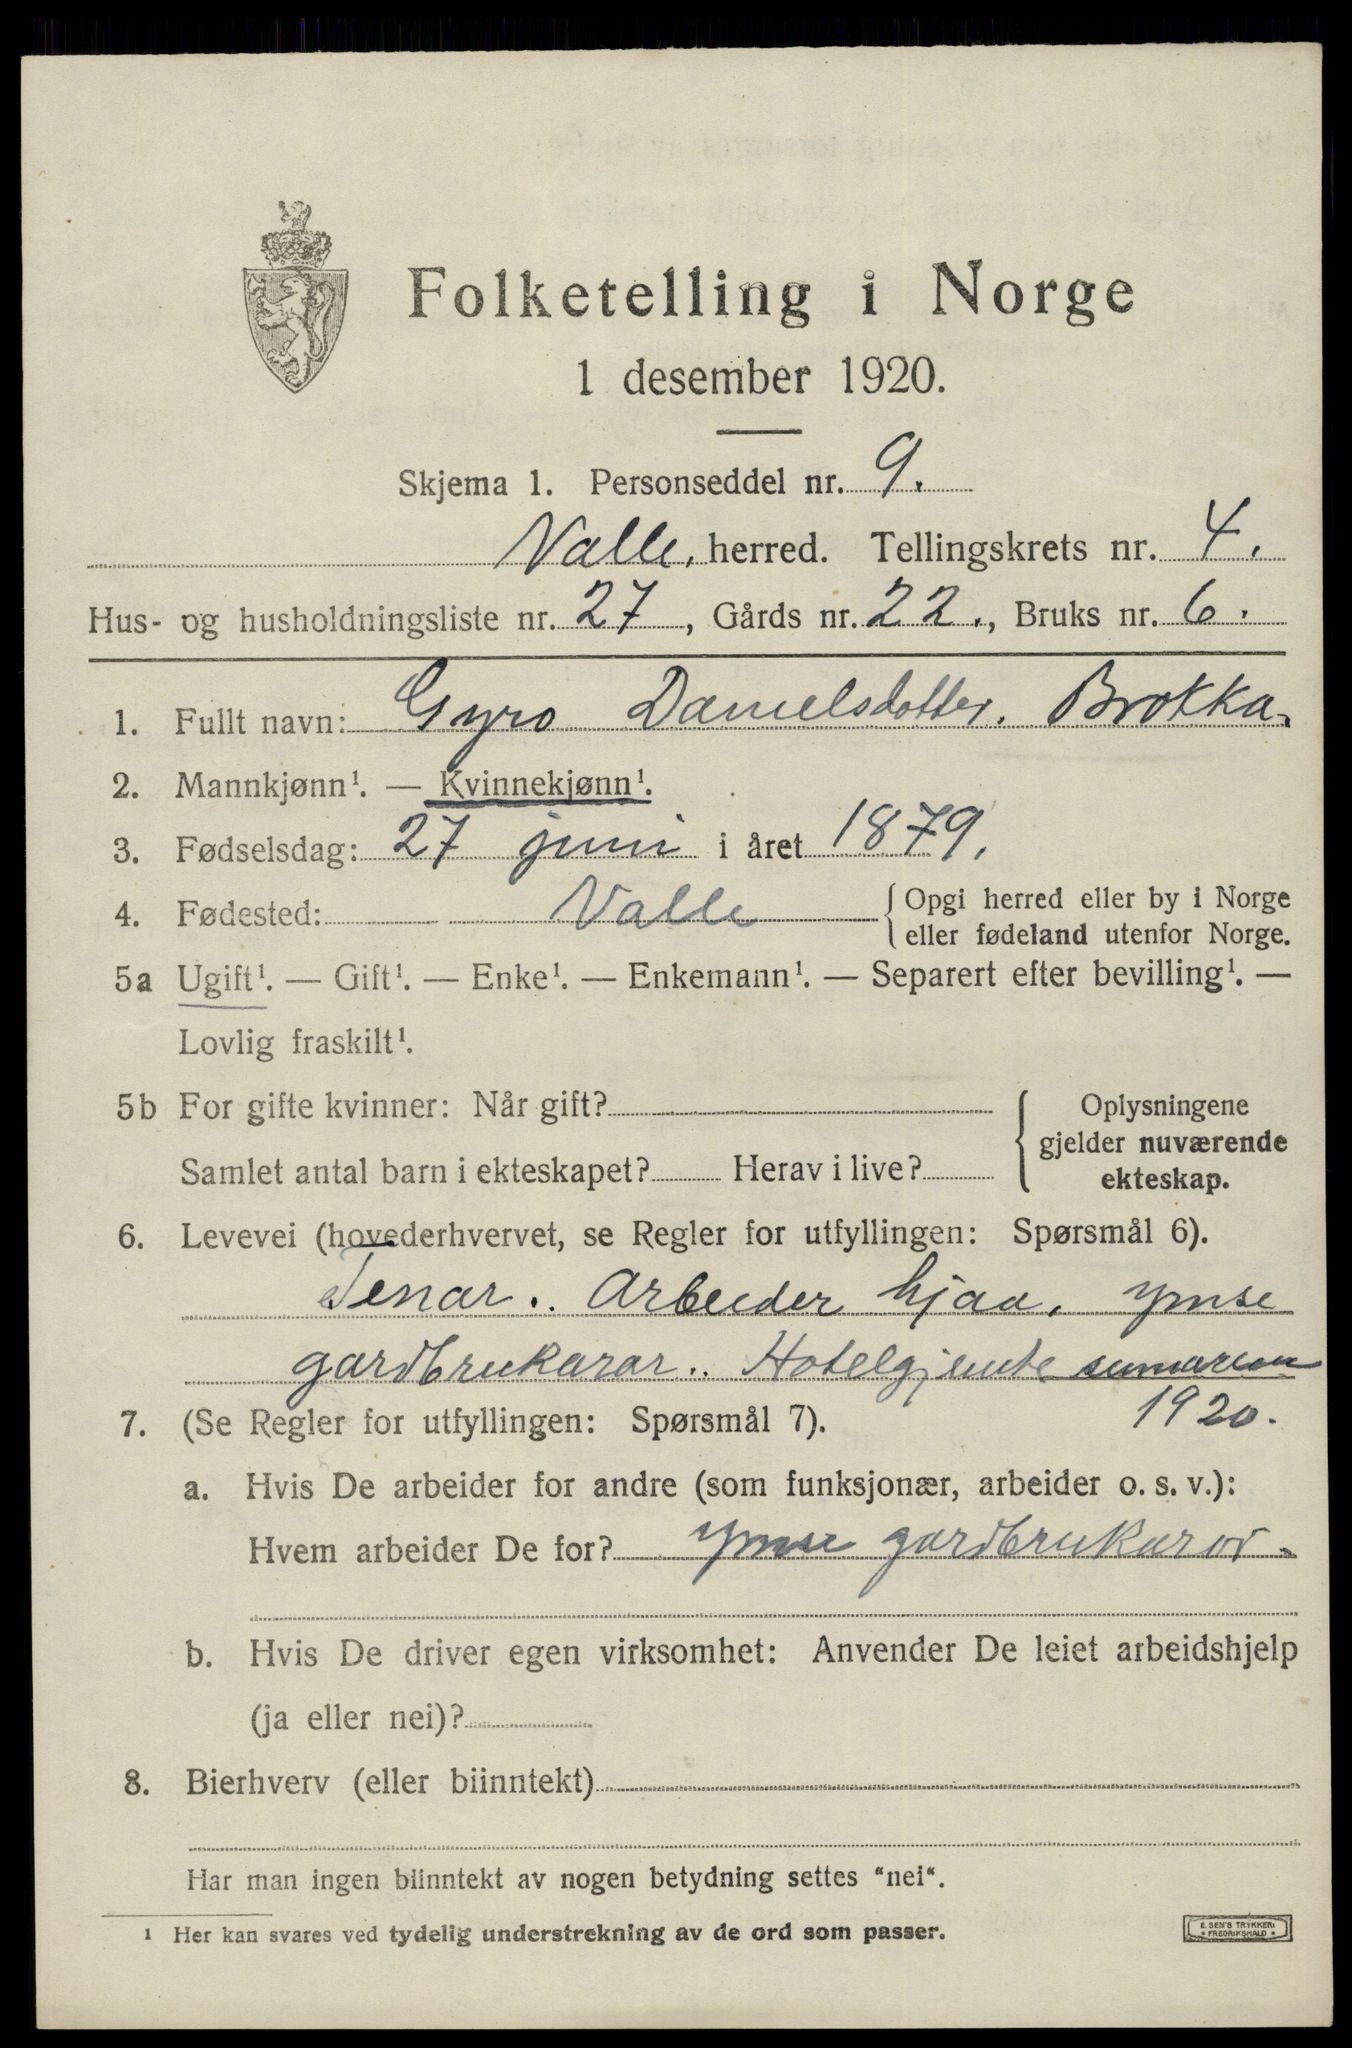 Folketelling i Norge
1 desember 1920.
Skjema 1. Personseddel nr. 9.
Valle, herred. Tellingskrets nr. 4.
Hus- og husholdningsliste nr. 27, Gårds nr. 22., Bruks nr. 6.
1. Fullt navn: Gyro Danielsdotter. Brokka.
2. Mannkjønn¹. — Kvinnekjønn¹.
3. Fødselsdag: 27 juni i året 1879.
4. Fødested: Valle { Opgi herred eller by i Norge
eller fødeland utenfor Norge.
5a Ugift¹. — Gift¹. — Enke¹. — Enkemann¹. — Separert efter bevilling¹. —
Lovlig fraskilt¹.
5b For gifte kvinner: Når gift? { Oplysningene
gjelder nuværende
Samlet antal barn i ekteskapet? Herav i live? ekteskap.
6. Levevei (hovederhvervet, se Regler for utfyllingen: Spørsmål 6).
Tenar. Arbeider hjaa, ymse
gardbrukarar. Hotelgjente sumaren
1920.
7. (Se Regler for utfyllingen: Spørsmål 7).
a. Hvis De arbeider for andre (som funksjonær, arbeider o. s. v.):
Hvem arbeider De for? ymse gardbrukarar.
b. Hvis De driver egen virksomhet: Anvender De leiet arbeidshjelp
(ja eller nei)?
8. Bierhverv (eller biinntekt)
Har man ingen biinntekt av nogen betydning settes "nei".
¹ Her kan svares ved tydelig understrekning av de ord som passer.
E. SEM'S TRYKKERI
* FREDRIKSHALD *